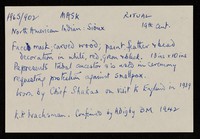 1965/902 MASK RITUAL
North American Indian: Sioux 19th Cent.
Face mask, carved wood, paint, feather & bead
decoration in white, red, green & black. 18 ins x 10 ins
Represents tribal ancestor & is used in ceremony
requesting protection against smallpox.
Worn by Chief Shakes on visit to England in 1889
K.P. Confirmed by ADigby BM 1942